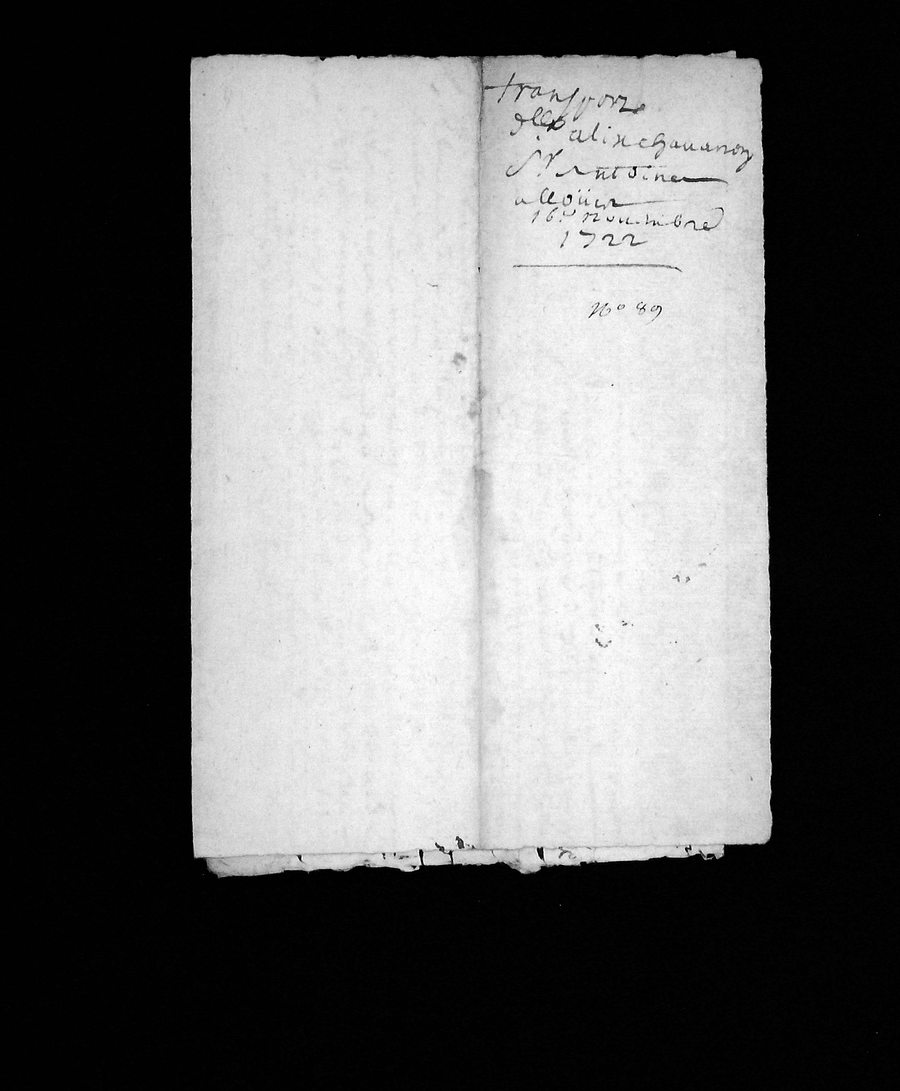 transport
dlle alix chauanon
Sr Antoine
alloüin
16e nouembre
1722
No 89